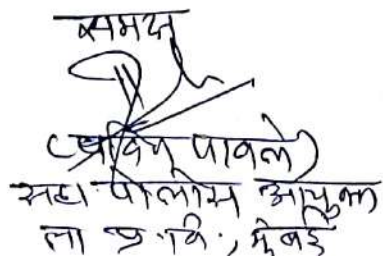 समक्ष
(प्रविण पावले)
सहा पोलीस आयुक्त
ला प्र. वि., मुंबई